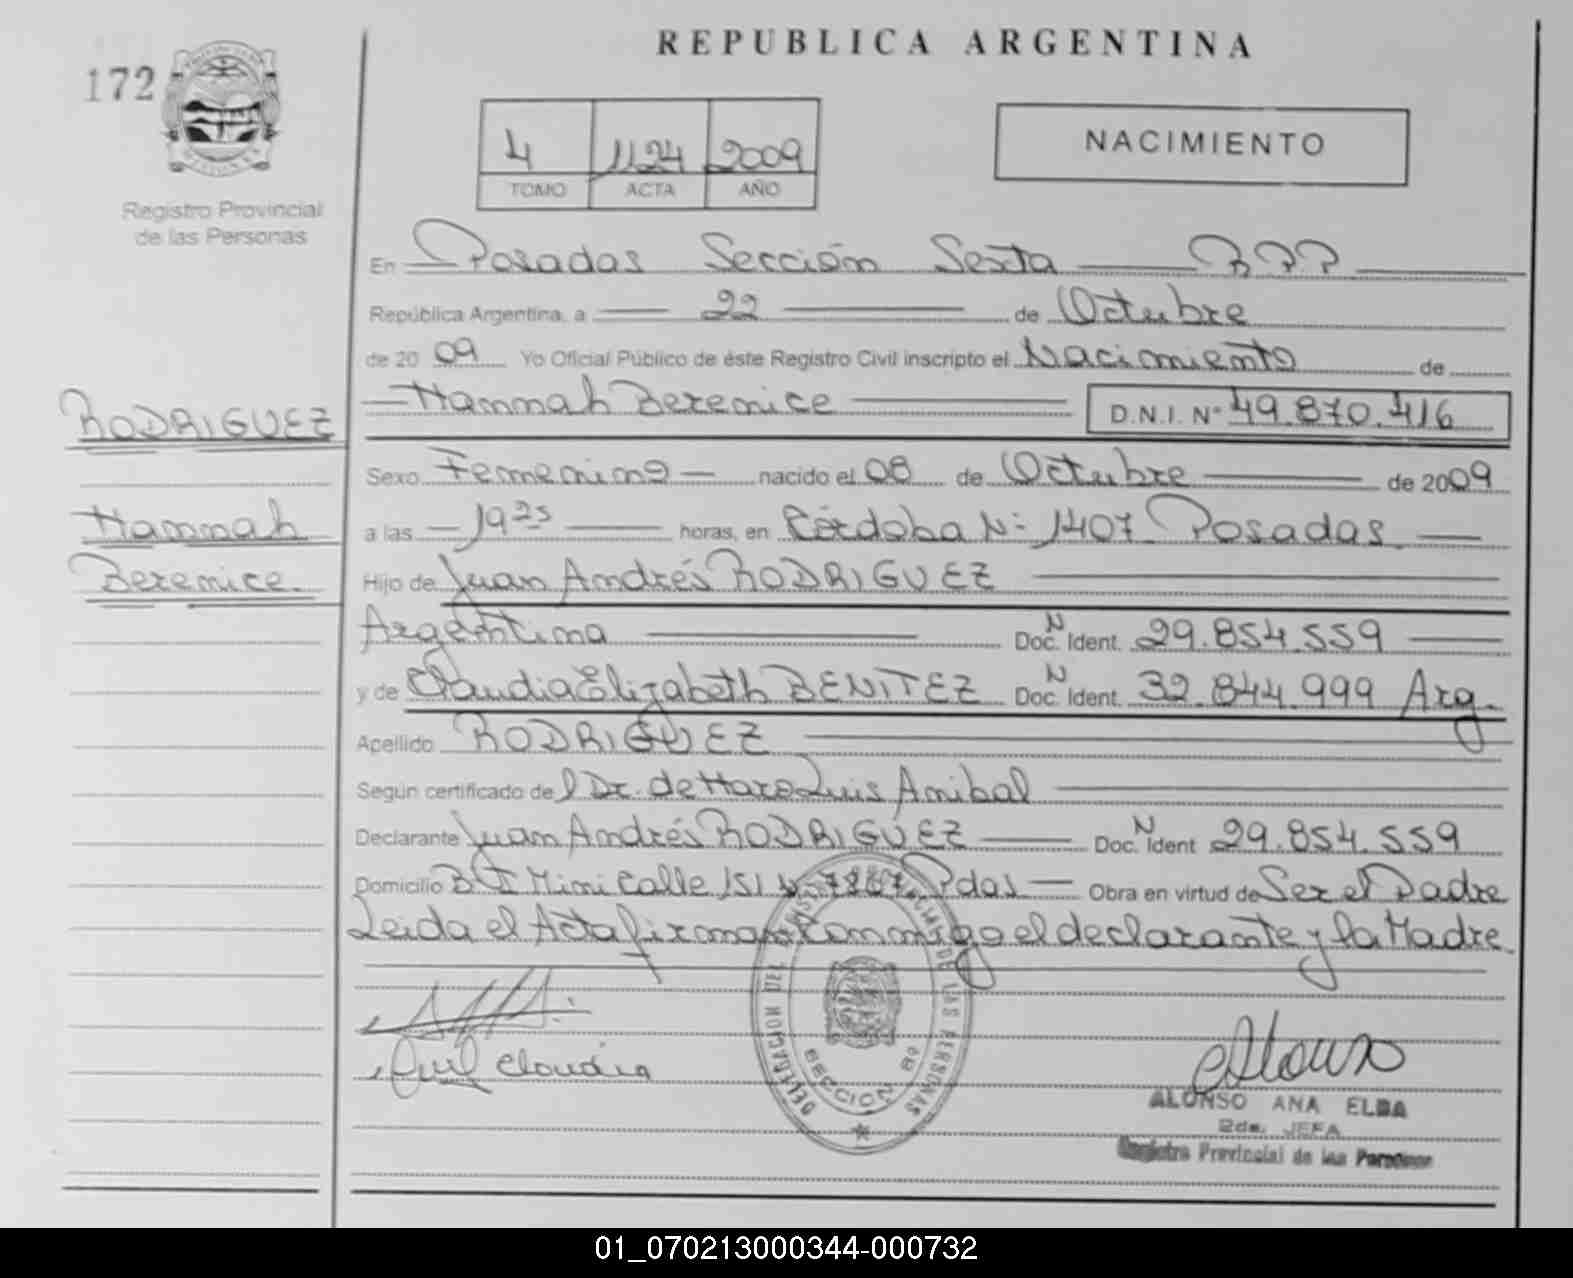 REPUBLICA ARGENTINA
172
4 1124 2009
TOMO ACTA AÑO
NACIMIENTO
Registro Provincial
de las Personas
En Posadas Sección Sexta RPP
República Argentina, a 22 de Octubre
de 2009 Yo Oficial Público de éste Registro Civil inscripto el Nacimiento de
Hannah Berenice D.N.I. Nº 49.870.416
RODRIGUEZ
Hannah
Berenice.
Sexo Femenino nacido el 08 de Octubre de 2009
a las 19 25 horas, en Córdoba Nº 1407 Posadas.
Hijo de Juan Andrés RODRIGUEZ
Argentina Doc. Ident. N 29.854.559
y de Claudia Elizabeth BENITEZ Doc. Ident. N 32.844.999 Arg.
Apellido RODRIGUEZ
Según certificado del Dr. de Haro Luis Anibal
Declarante Juan Andrés RODRIGUEZ Doc. Ident N 29.854.559
Domicilio Mini Calle 151 Pdas Obra en virtud de Ser el Padre
Leida el Acta firman Conmigo el declarante y la Madre.
Claudia
DELEGACION DEL REGISTRO PROVINCIAL DE LAS PERSONAS
SECCION 6º
ALONSO ANA ELBA
2da. JEFA
Registro Provincial de las Personas
01_070213000344-000732